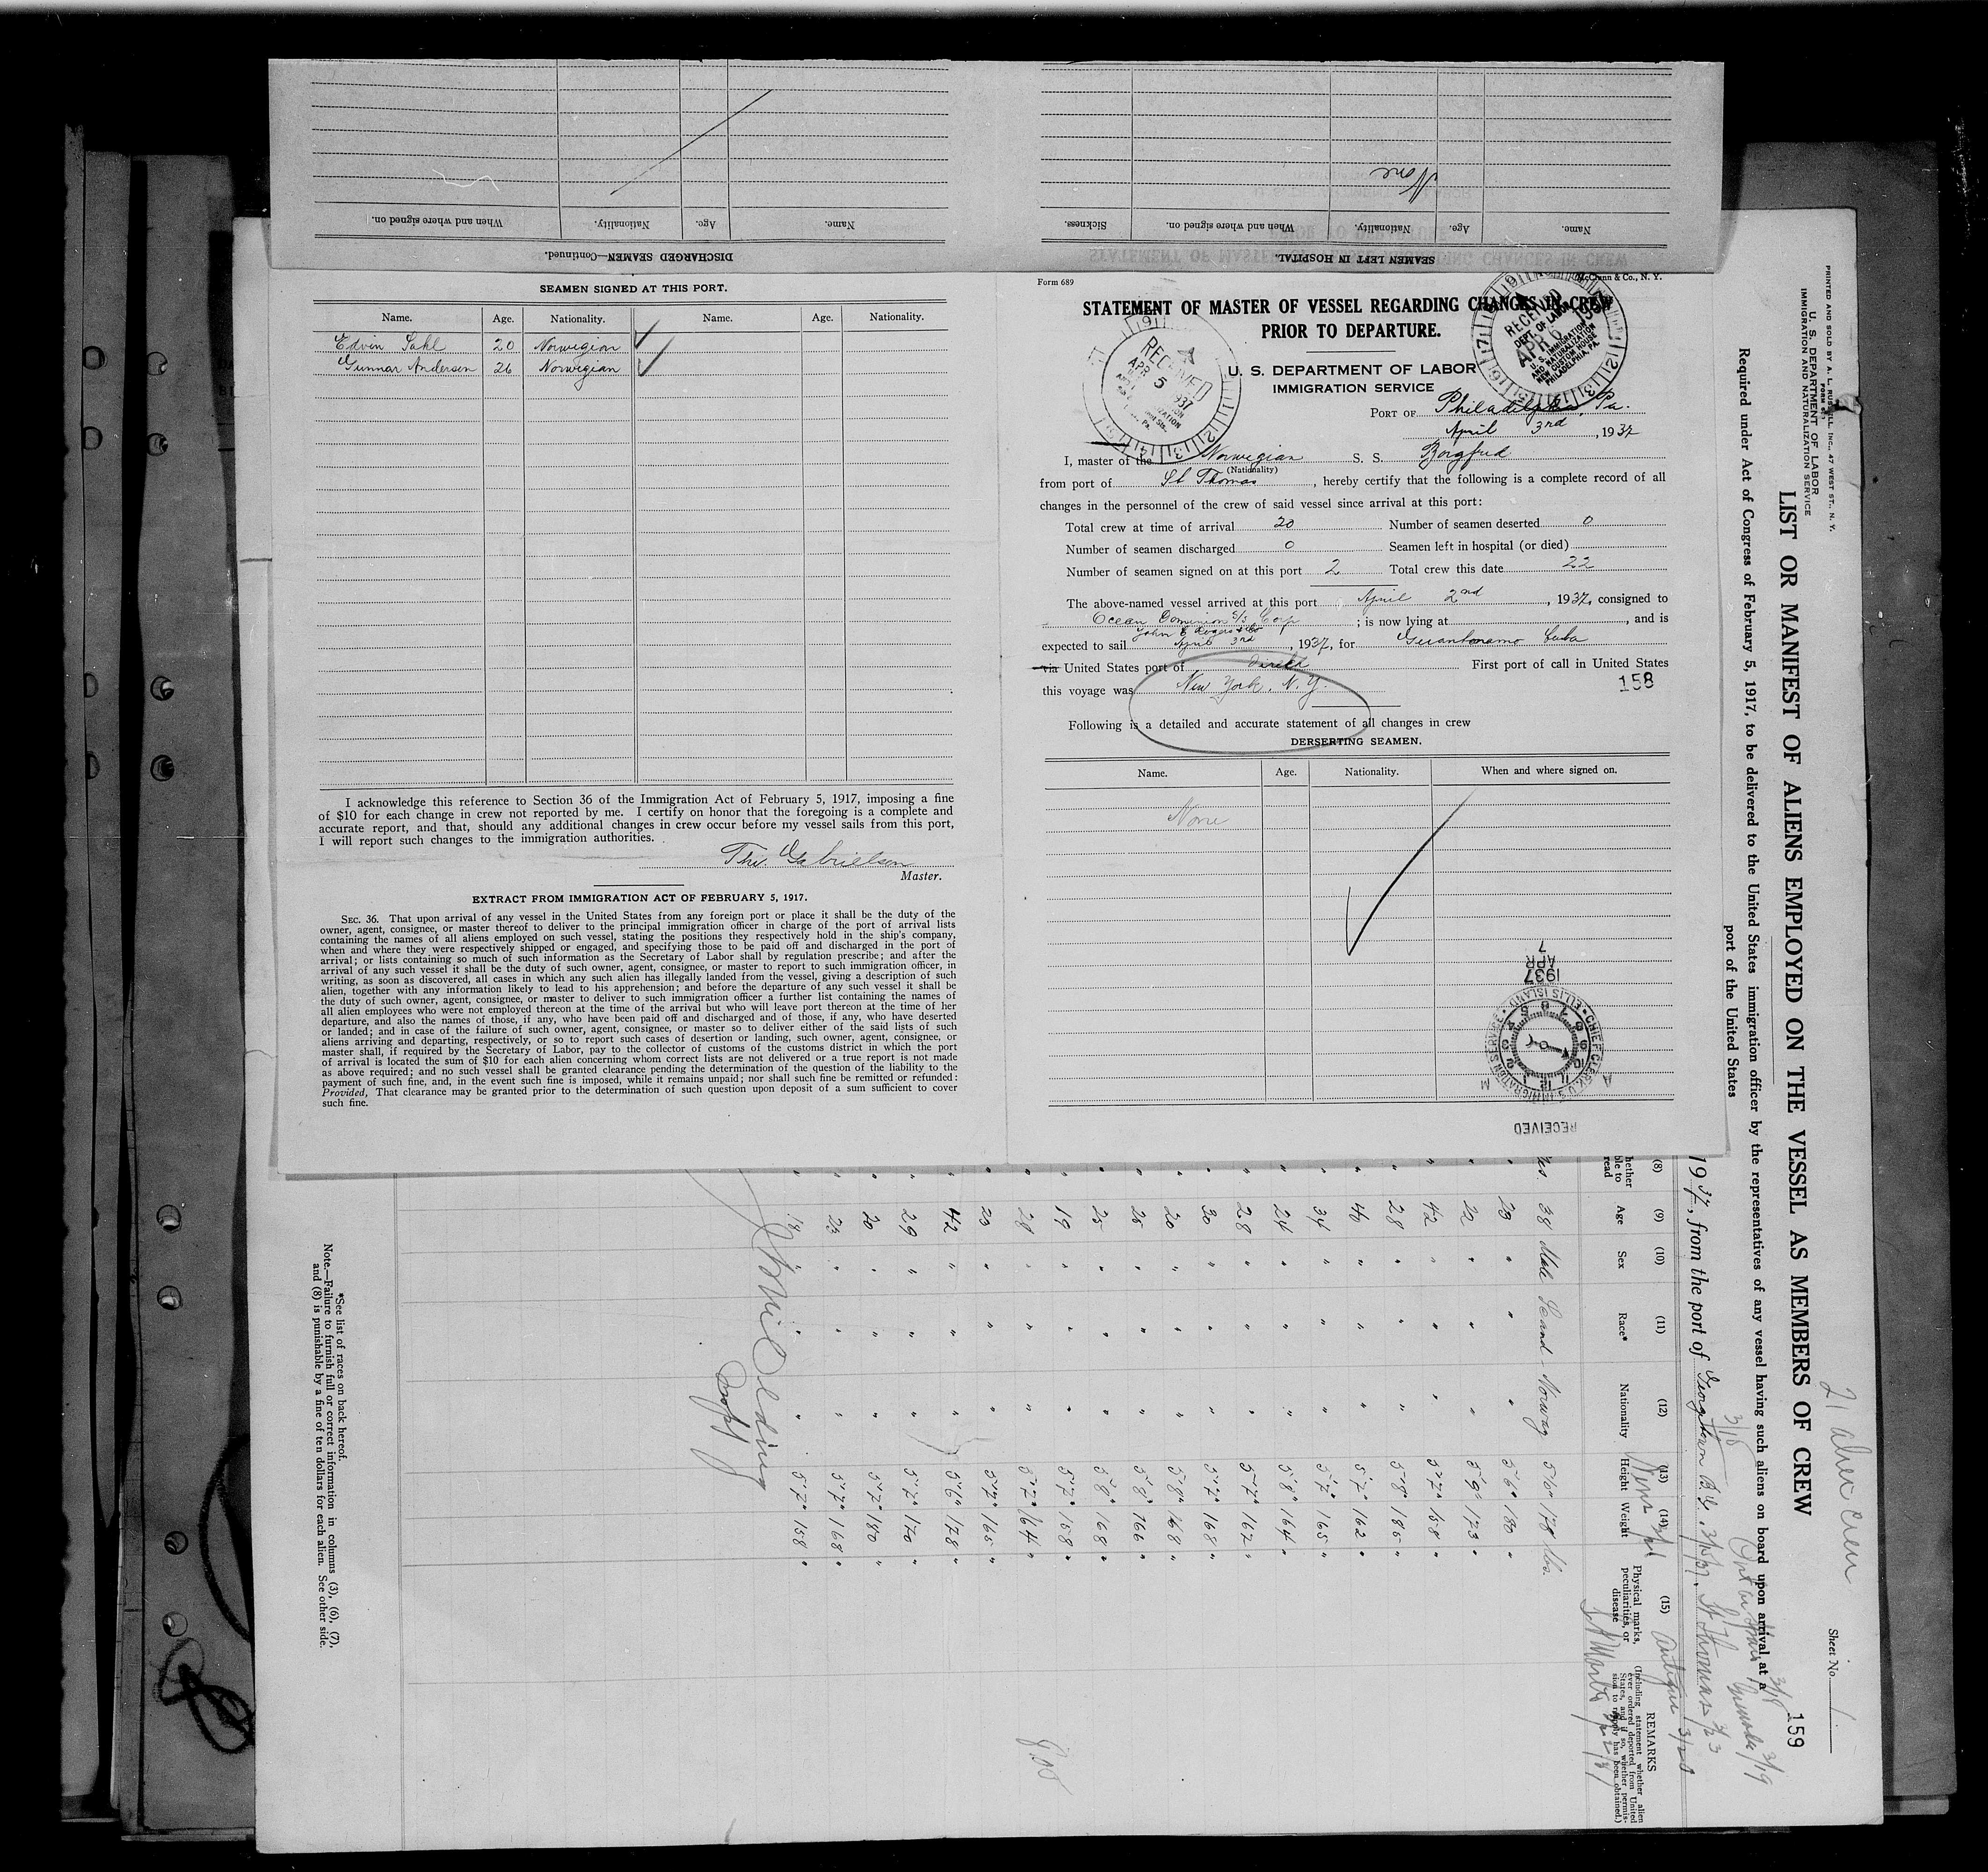 DISCHARGED SEAMEN—Continued.
Name.
Age.
Nationality.
When and where signed on.
SEAMEN LEFT IN HOSPITAL.
Name.
Age.
Nationality.
When and where signed on.
Sickness.
None
SEAMEN SIGNED AT THIS PORT.
Name. Age. Nationality. Name. Age. Nationality.
Edvin Sahl 20 Norwegian
Gunnar Andersen 26 Norwegian
I acknowledge this reference to Section 36 of the Immigration Act of February 5, 1917, imposing a fine
of $10 for each change in crew not reported by me. I certify on honor that the foregoing is a complete and
accurate report, and that, should any additional changes in crew occur before my vessel sails from this port,
I will report such changes to the immigration authorities.
Thv. Gabrielsen
Master.
EXTRACT FROM IMMIGRATION ACT OF FEBRUARY 5, 1917.
SEC. 36. That upon arrival of any vessel in the United States from any foreign port or place it shall be the duty of the
owner, agent, consignee, or master thereof to deliver to the principal immigration officer in charge of the port of arrival lists
containing the names of all aliens employed on such vessel, stating the positions they respectively hold in the ship's company,
when and where they were respectively shipped or engaged, and specifying those to be paid off and discharged in the port of
arrival; or lists containing so much of such information as the Secretary of Labor shall by regulation prescribe; and after the
arrival of any such vessel it shall be the duty of such owner, agent, consignee, or master to report to such immigration officer, in
writing, as soon as discovered, all cases in which any such alien has illegally landed from the vessel, giving a description of such
alien, together with any information likely to lead to his apprehension; and before the departure of any such vessel it shall be
the duty of such owner, agent, consignee, or master to deliver to such immigration officer a further list containing the names of
all alien employees who were not employed thereon at the time of the arrival but who will leave port thereon at the time of her
departure, and also the names of those, if any, who have been paid off and discharged and of those, if any, who have deserted
or landed; and in case of the failure of such owner, agent, consignee, or master so to deliver either of the said lists of such
aliens arriving and departing, respectively, or so to report such cases of desertion or landing, such owner, agent, consignee, or
master shall, if required by the Secretary of Labor, pay to the collector of customs of the customs district in which the port
of arrival is located the sum of $10 for each alien concerning whom correct lists are not delivered or a true report is not made
as above required; and no such vessel shall be granted clearance pending the determination of the question of the liability to the
payment of such fine, and, in the event such fine is imposed, while it remains unpaid; nor shall such fine be remitted or refunded:
Provided, That clearance may be granted prior to the determination of such question upon deposit of a sum sufficient to cover
such fine.
Form 689
& Co., N. Y.
STATEMENT OF MASTER OF VESSEL REGARDING CHANGES IN CREW
PRIOR TO DEPARTURE.
U. S. DEPARTMENT OF LABOR
IMMIGRATION SERVICE
RECEIVED
APR 5 1937
RECEIVED
DEPT. OF LABOR
APR 6 1937
U. S. IMMIGRATION
AND NATURALIZATION
NEW CUSTOM HOUSE
PHILADELPHIA, PA.
PORT OF Philadelphia, Pa.
April 3rd, 1937
I, master of the Norwegian S. S. Borgfred
(Nationality)
from port of St Thomas, hereby certify that the following is a complete record of all
changes in the personnel of the crew of said vessel since arrival at this port:
Total crew at time of arrival 20 Number of seamen deserted 0
Number of seamen discharged 0 Seamen left in hospital (or died)
Number of seamen signed on at this port 2 Total crew this date 22
The above-named vessel arrived at this port April 2nd, 1937, consigned to
Ocean Dominion S/S Corp ; is now lying at , and is
John E Rogers & Co
expected to sail April 3rd, 1937, for Guantanamo Cuba
via United States port of direkt First port of call in United States
this voyage was New York, N. Y.
158
Following is a detailed and accurate statement of all changes in crew
DERSERTING SEAMEN.
Name. Age. Nationality. When and where signed on.
None
APR 7
1937
CHIEF CLERK, U. S. IMMIGRATION SERVICE · ELLIS ISLAND
A M
RECEIVED
PRINTED AND SOLD BY A. L. RUSSELL, INC., 47 WEST ST., N. Y.
U. S. DEPARTMENT OF LABOR
IMMIGRATION AND NATURALIZATION SERVICE
21 alien crew
Sheet No. 1
LIST OR MANIFEST OF ALIENS EMPLOYED ON THE VESSEL AS MEMBERS OF CREW
159
Required under Act of Congress of February 5, 1917, to be delivered to the United States immigration officer by the representatives of any vessel having such aliens on board upon arrival at a
port of the United States
1937, from the port of Georgetown B.G. 3/15/37. St Thomas 3/23
3/18 Grenada 3/19
Antigua
(8) (9) (10) (11) (12) (13) (14) (15)
Age Sex Race* Nationality Height Weight Physical marks, peculiarities, or disease
REMARKS
(Including statement whether alien ever ordered deported from United States, and if so, whether permission to reapply has been obtained.)
Yes. 38 Male Scand- Norway 5'6" 178 lbs.
" 23 " " " 5'6" 180 "
" 22 " " " 5'9" 173 "
" 42 " " " 5'7" 158 "
" 28 " " " 5'8" 185 "
" 40 " " " 5'7" 162 "
" 34 " " " 5'7" 165 "
" 24 " " " 5'8" 164 "
" 28 " " " 5'7" 162 "
" 30 " " " 5'7" 168 "
" 20 " " " 5'8" 168 "
" 25 " " " 5'8" 166 "
" 25 " " " 5'8" 168 "
" 19 " " " 5'7" 158 "
" 28 " " " 5'7" 164 "
" 23 " " " 5'7" 165 "
" 42 " " " 5'6" 178 "
" 29 " " " 5'7" 170 "
" 30 " " " 5'7" 180 "
" 23 " " " 5'7" 168 "
" 18 " " " 5'7" 158 "
*See list of races on back hereof.
Note.—Failure to furnish full or correct information in columns (3), (6), (7),
and (8) is punishable by a fine of ten dollars for each alien. See other side.